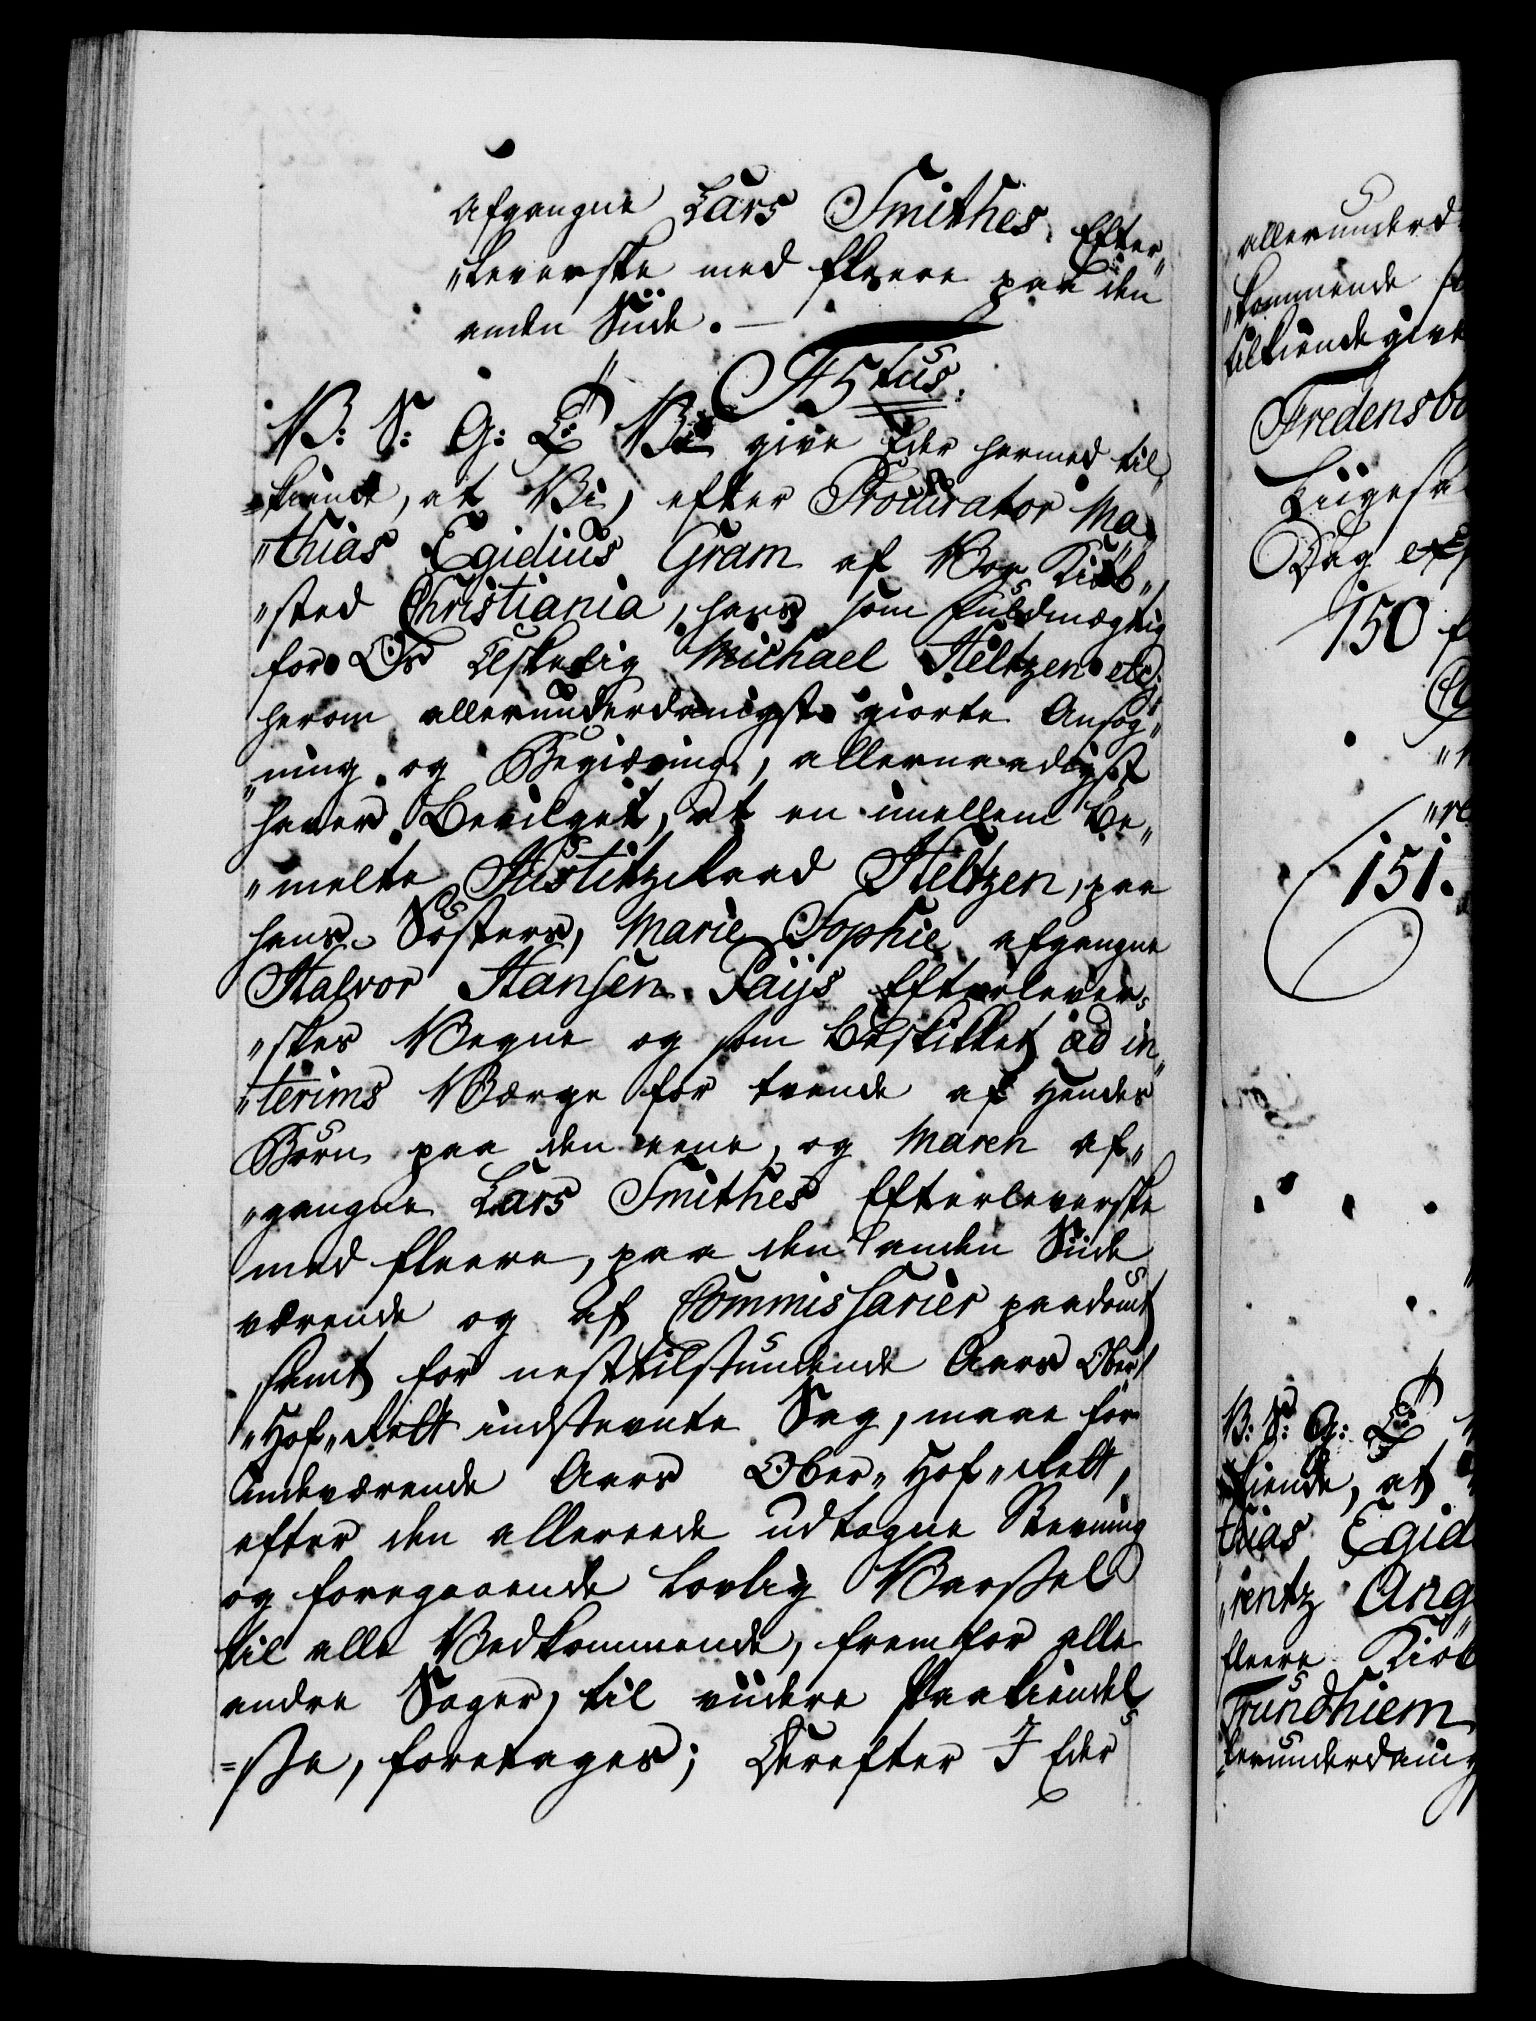 afgangne Lars Smithes Efter„
„leverske med fleere paa den
anden Siide. —
F5tus.
V: S: G: T: Vi give Eder hermed til„
„kiende, at Vi, efter Procurator Ma„
„thias Egidius Gram af Vor Kiøb„
„sted Christiania, hans som fuldmægtig
for Os Elskelig Michael Heltzen etc:
herom allerunderdanigst giorte Ansøg„
„ning og Begiæring, allernaadigst
haver Bevilget, at en imellem Be„
„melte Justitz Raad Heltzen, paa
hans Søsters, Marie Sophie afgangne
Halvor Hansen Paÿs Efterlever„
„skes Vegne og som beskikket ad in„
„terims Værge for tvende af Hendes
Børn paa den eene, og Maren af„
„gangne Lars Smithes Efterleverske
med fleere, paa den anden Siide
værende og af Commissarier paadømt
samt for nesttilstundende Aars Ober„
„Hof„Rett indstevnte Sag, maae for
indeværende Aars Ober„Hof„Rett,
efter den allereede udtagne Stevning
og foregaaende lovlig Varssel
til alle Vedkommende, frem for alle
andre Sager, til viidere Paakiendel„
=sse, foretages; Derefter I Eder
allerunderd
„kommende
tilkiende give
Fredensbo
Liigesaa
Dag
150
151.
V: S: G: T:
„kiende, at
thias Egid
„rentz Ang
fleere Kiøb
Trundhiem
lerunderdanig